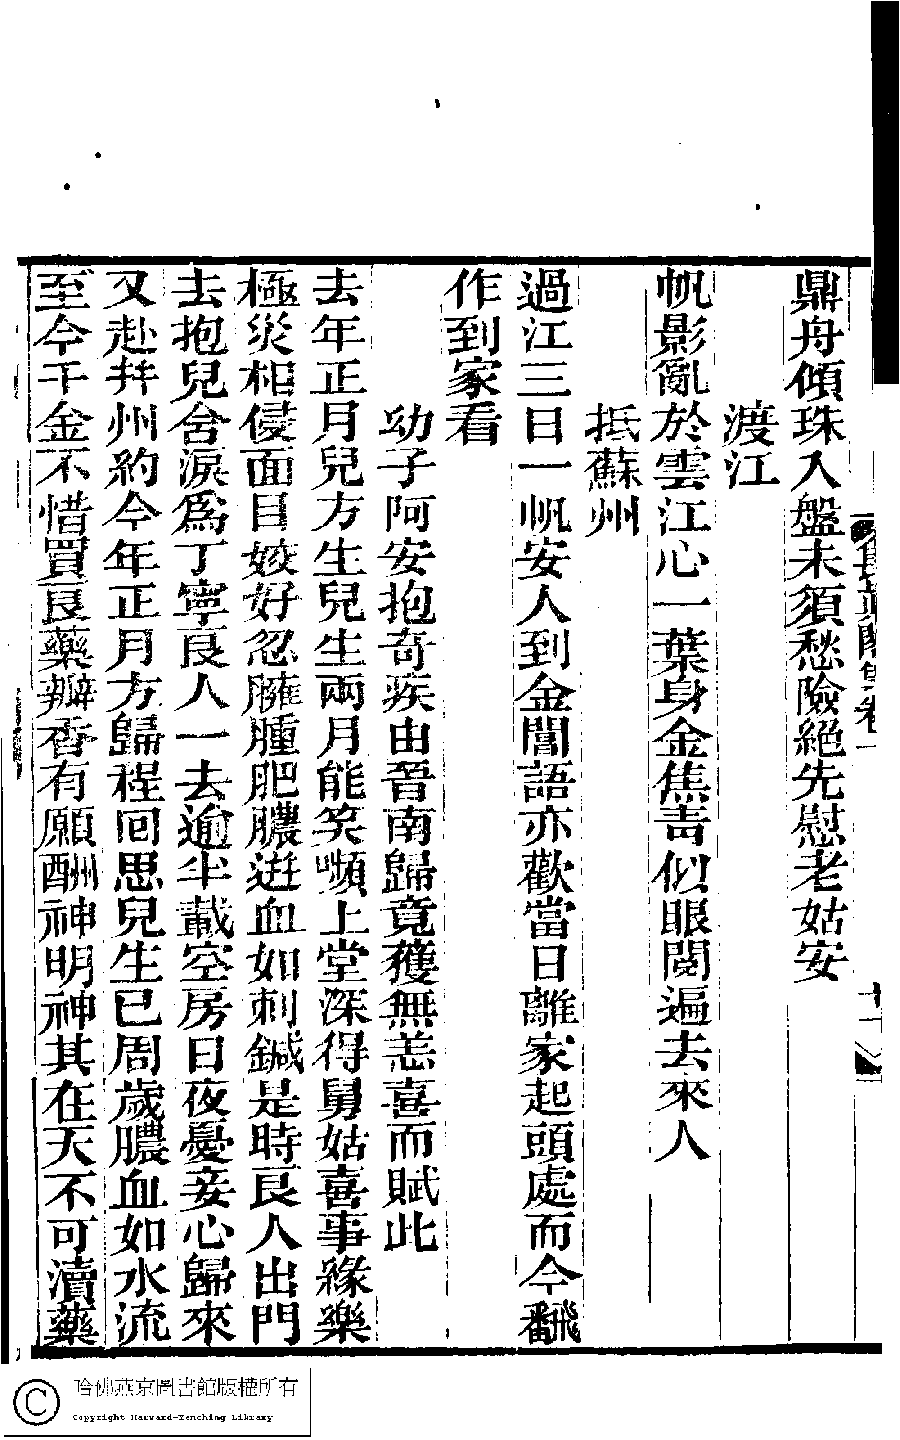 鼎舟傾珠入盤未須愁險絕先慰老姑安
渡江
帆影亂於雲江心一葉身金焦青似眼閱遍去來人
抵蘇州
過江三日一帆安人到金閶語亦歡當日離家起頭處而今翻
作到家看
幼子阿安抱奇疾由晉南歸竟獲無恙喜而賦此
去年正月兒方生兒生兩月能笑嚬上堂深得舅姑喜事緣樂
極災相侵面目姣好忽臃腫肥膿迸血如刺鍼是時良人出門
去抱兒含淚為丁寧良人一去逾半載空房日夜憂妾心歸來
又赴幷州約今年正月方歸程回思兒生已周歲膿血如水流
至今千金不惜買良藥瓣香有願酬神明神其在天不可瀆藥
長真閣集卷一
十一
哈佛燕京圖書館版權所有
Copyright Harvard-Yenching Library